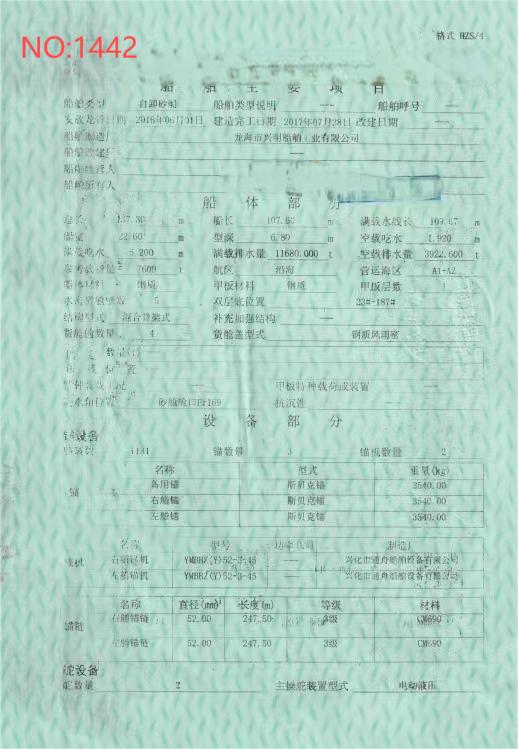 格式 HZS/4
NO:1442
船舶主要项目
船舶类型 自卸砂船 船舶类型说明 —— 船舶呼号 ——
安放龙骨日期 2016年06月01日 建造完工日期 2017年07月28日 改建日期 ——
船舶制造厂 龙海市兴明船舶工业有限公司
船舶改建厂 ——
船舶经营人
船舶所有人
船体部分
总长 137.30 m 船长 107.60 m 满载水线长 109.67 m
船宽 22.60 m 型深 6.80 m 空载吃水 1.920 m
满载吃水 5.200 m 满载排水量 11680.000 t 空载排水量 3922.600 t
参考载货量 7609 t 航区 沿海 营运海区 A1+A2
船体材料 钢质 甲板材料 钢质 甲板层数 1
水密横舱壁数 5 双层底位置 23#-187#
结构型式 混合骨架式 补充加强结构 ——
货舱的数量 4 货舱盖型式 钢质风雨密
数量
位置
甲板特种载荷或装置 ——
抗沉性 ——
设备部分
锚设备
1181 锚数量 3 锚机数量 2
名称 型式 重量(kg)
锚 备用锚 斯贝克锚 3540.00
右艏锚 斯贝克锚 3540.00
左艏锚 斯贝克锚 3540.00
名称 型号 功率 制造厂
锚机 右艏锚机 YMBBHZ(Y)52-3-45 —— 兴化市通舟船舶设备有限公司
左艏锚机 YMBBHZ(Y)52-3-45 —— 兴化市通舟船舶设备有限公司
名称 直径(mm) 长度(m) 等级 材料
锚链 右艏锚链 52.00 247.50 3级 CM690
左艏锚链 52.00 247.50 3级 CM690
舵设备
舵数量 2 主操舵装置型式 电动液压